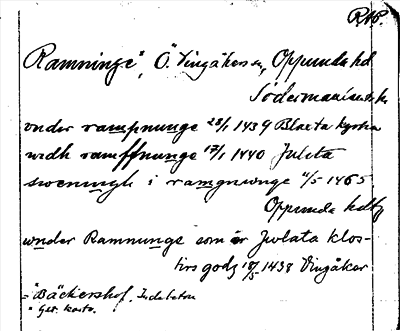 RAÄ.
Ramninge°, Ö. Vingåkers sn, Oppunda hd
Södermanlands
vnder rampnunge 28/1 1439 Blacta kyrka
wedh ramffnunge 17/1 1440 Juleta
sweningh i ramgnwnge 4/5 1465
Oppunda hdtg
wnder Ramnunge som er Jwlata klos-
tirs godz 18/5 1438 Vingåker
= Bäckershof, Indebetou
° Gen. karta.